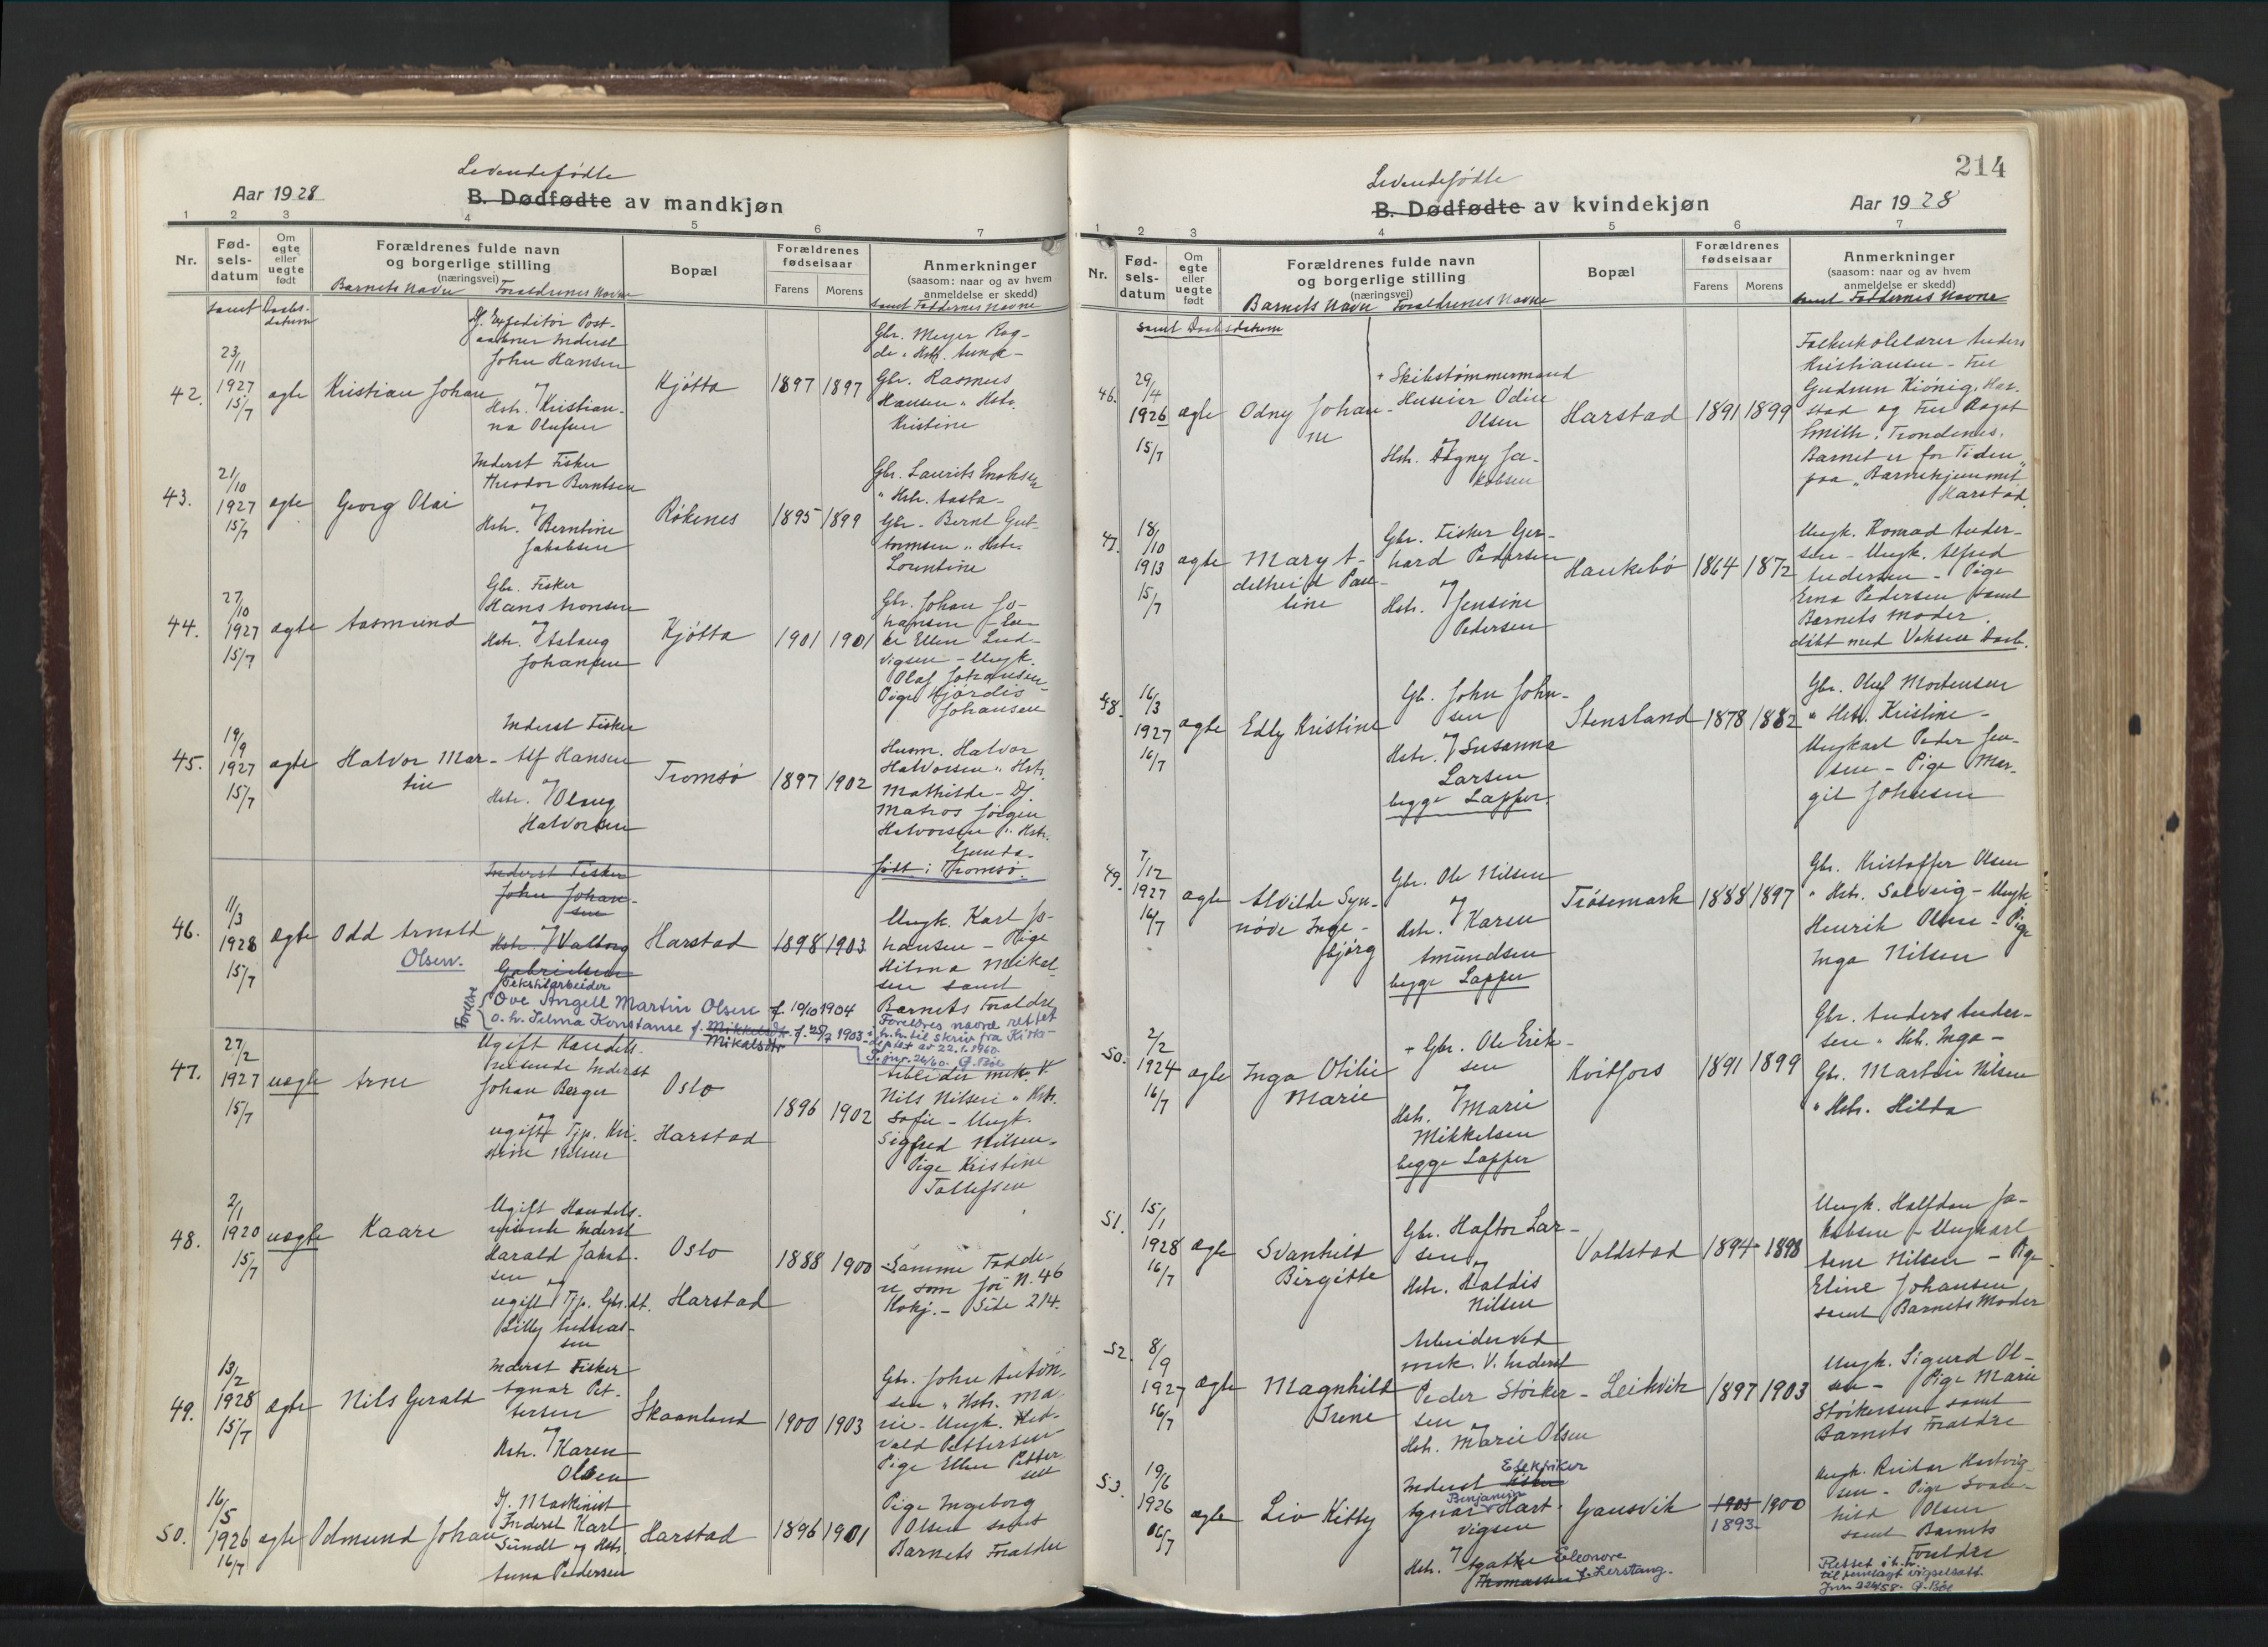 Levendefødte
Aar 1928
B. Dødfødte av mandkjøn
1 2 3 4 5 6 7
Nr.
Fød-
sels-
datum
Om
egte
eller
uegte
født
Forældrenes fulde navn
og borgerlige stilling
(næringsvei)
Barnets Navn Forældrenes Navne
Bopæl
Forældrenes
fødselsaar
Farens Morens
Anmerkninger
(saasom: naar og av hvem
anmeldelse er skedd)
samt Faddernes Navne
samt Daabs-
datum
42.
23/11
1927
15/7
ægte
Kristian Johan
Df. Expeditør Post-
aabner Inderst
John Hansen
og
Hstr. Kristian-
na Olufsen
Kjøtta
1897 1897
Gbr. Meyer Rog-
de " Hstr. Anna -
Gbr. Rasmus
Hansen " Hstr.
Kristine
43.
21/10
1927
15/7
ægte
Georg Olai
Inderst Fisker
Theodor Berntsen
og
Hstr. Berntine
Jakobsen
Røkenes
1895 1899
Gbr. Laurits Enoksen
" Hstr. Aasta -
Gbr. Bernt Gut-
tormsen " Hstr.
Lorentine
44.
27/10
1927
15/7
ægte
Aasmund
Gbr. Fisker
Hans Aronsen
og
Hstr. Aslaug
Johansen
Kjøtta
1901 1901
Gbr. Johan Jo-
hansen
Ellen Lud-
vigsen - Ungk.
Olaf Johansen -
Pige Hjørdis
Johansen
45.
19/9
1927
15/7
ægte
Halvor Mar-
tin
Inderst Fisker
Alf Hansen
og
Hstr. Olaug
Halvorsen
Tromsø
1897 1902
Husm. Halvor
Halvorsen " Hstr.
Mathilde - Df.
Matros Jørgen
Halvorsen " Hstr.
Gunda -
født i Tromsø.
46.
11/3
1928
15/7
ægte
Odd Arnold
Olsen.
Inderst Fisker
John Johan-
sen
og
Hstr. Valborg
Gabrielsen
Harstad
1898 1903
Ungk. Karl Jo-
hansen - Pige
Hilma Mikal-
sen samt
Barnets Forældre
Foreldre
Tekstilarbeider
Ove Angell Martin Olsen f. 19/10 1904
o. h. Selma Konstanse f. Mikkelsdtr. f. 25/7 1903
Mikalsdtr
Foreldres navne rettet
i h.h. til skriv fra Kirke-
dep.tet av 22.1.1960.
J.nr. 26/60. G. Bøe
47.
27/2
1927
15/7
uægte
Arne
Ugift Handels-
reisende Inderst
Johan Berger
og
ugift Tjp. Kri-
stine Nilsen
Oslo
Harstad
1896 1902
Arbeider mek. V.
Nils Nilsen " Hstr.
Sofie - Ungk.
Sigfred Nilsen -
Pige Kristine
Tollefsen
48.
2/1
1920
15/7
uægte
Kaare
Ugift Handels-
reisende Inderst
Harald Jakob-
sen
og
ugift Tjp. Gbr.dt.
Lilly Andreas-
sen
Oslo
Harstad
1888 1900
Samme Fadde-
re som for N. 46
Kvkj. - Side 214.
49.
13/2
1928
15/7
ægte
Nils Gerald
Inderst Fisker
Agnar Pet-
tersen
og
Hstr. Karen
Olsen
Skaanland
1900 1903
Gbr. John Anton-
sen " Hstr. Ma-
rie - Ungk. Hed-
vald Pettersen
Pige Ellen Petter-
sen
50.
16/5
1926
16/7
ægte
Odmund Johan
Df. Maskinist
Inderst Karl
Sundt og Hstr.
Anna Pedersen
Harstad
1896 1901
Pige Ingeborg
Olsen samt
Barnets Forældre
214
Levendefødte
B. Dødfødte av kvindekjøn
Aar 1928
1 2 3 4 5 6 7
Nr.
Fød-
sels-
datum
Om
egte
eller
uegte
født
Forældrenes fulde navn
og borgerlige stilling
(næringsvei)
Barnets Navn Forældrenes Navne
Bopæl
Forældrenes
fødselsaar
Farens Morens
Anmerkninger
(saasom: naar og av hvem
anmeldelse er skedd)
samt Faddernes Navne
samt Daabsdatum
46.
29/4
1926
15/7
ægte
Odny Johan-
ne
+ Skibstømmermand
Huseier Odin
Olsen
og
Hstr. Dagny Ja-
kobsen
Harstad
1891 1899
Folkeskolelærer Anders
Kristiansen - Fru
Gudrun Kiønig, Har-
stad og Fru Ragot
Smith, Trondenes.
Barnet er for Tiden
paa "Barnehjemmet"
Harstad
47.
18/10
1913
15/7
ægte
Mary A-
delheid Pau-
line
Gbr. Fisker Ger-
hard Pedersen
og
Hstr. Jensine
Pedersen
Haukebø
1864 1872
Ungk. Konrad Ander-
sen - Ungk. Alfred
Andersen - Pige
Erna Pedersen samt
Barnets Moder.
døbt med Voksen Daab.
48.
16/3
1927
16/7
ægte
Edly Kristine
Gb. John John-
sen
og
Hstr. Susanna
Larsen
begge Lapper.
Stensland
1878 1882
Gbr. Oluf Mortensen
" Hstr. Kristine -
Ungkarl Peder Jen-
sen - Pige Mar-
git Johnsen
49.
7/12
1927
16/7
ægte
Alvilde Syn-
nøve Inge-
bjørg
Gbr. Ole Nilsen
og
Hstr. Karen
Amundsen
begge Lapper
Trøsemark
1888 1897
Gbr. Kristoffer Olsen
" Hstr. Solveig - Ungk
Henrik Olsen - Pige
Inga Nilsen
50.
2/2
1924
16/7
ægte
Inga Otilie
Marie
+ Gbr. Ole Erik-
sen
og
Hstr. Marie
Mikkelsen
begge Lapper
Kvitfors
1891 1899
Gbr. Anders Ander-
sen " Hstr. Inga -
Gbr. Martin Nilsen
" Hstr. Hilda
51.
15/1
1928
16/7
ægte
Svanhild
Birgitte
Gbr. Haftor Lar-
sen
og
Hstr. Raldis
Nilsen
Voldstad
1894 1898
Ungk. Halfdan Ja-
kobsen - Ungkarl
Arne Nilsen - Pige
Eline Johansen
samt Barnets Moder
52.
8/9
1927
16/7
ægte
Magnhild
Irene
Arbeider ved
mek. V. Inderst
Peder Størker-
sen
og
Hstr. Marie Olsen
Leikvik
1897 1903
Ungk. Sigurd Ol-
sen - Pige Marie
Størkersen samt
Barnets Forældre
53.
19/6
1926
16/7
ægte
Liv Kitty
Elektriker
Inderst Fisker
Benjamin
Agnar Hart-
vigsen
og
Hstr. Agathe Eleonore
Thomassen f. Lerstang.
Gausvik
1903 1900
1893
Ungk. Reidar Hartvig-
sen - Pige Svan-
hild Olsen
samt Barnets
Forældre
Rettet i h.h.
til fremlagt vigselsatt.
Jnr. 224/58. G. Bøe